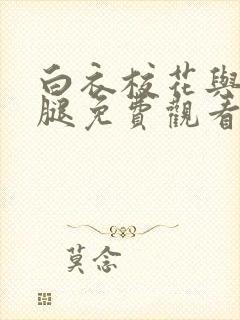 白衣校花與
腿免費觀看
莫念